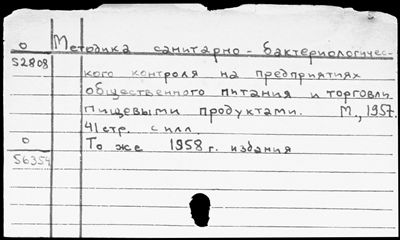 О Методика санитарно-бактериологичес-
52808
кого контроля на предприятиях
общественного питания и торговли
пищевыми продуктами. М., 1957.
41 стр. с илл.
О То же 1958 г. издания
56354